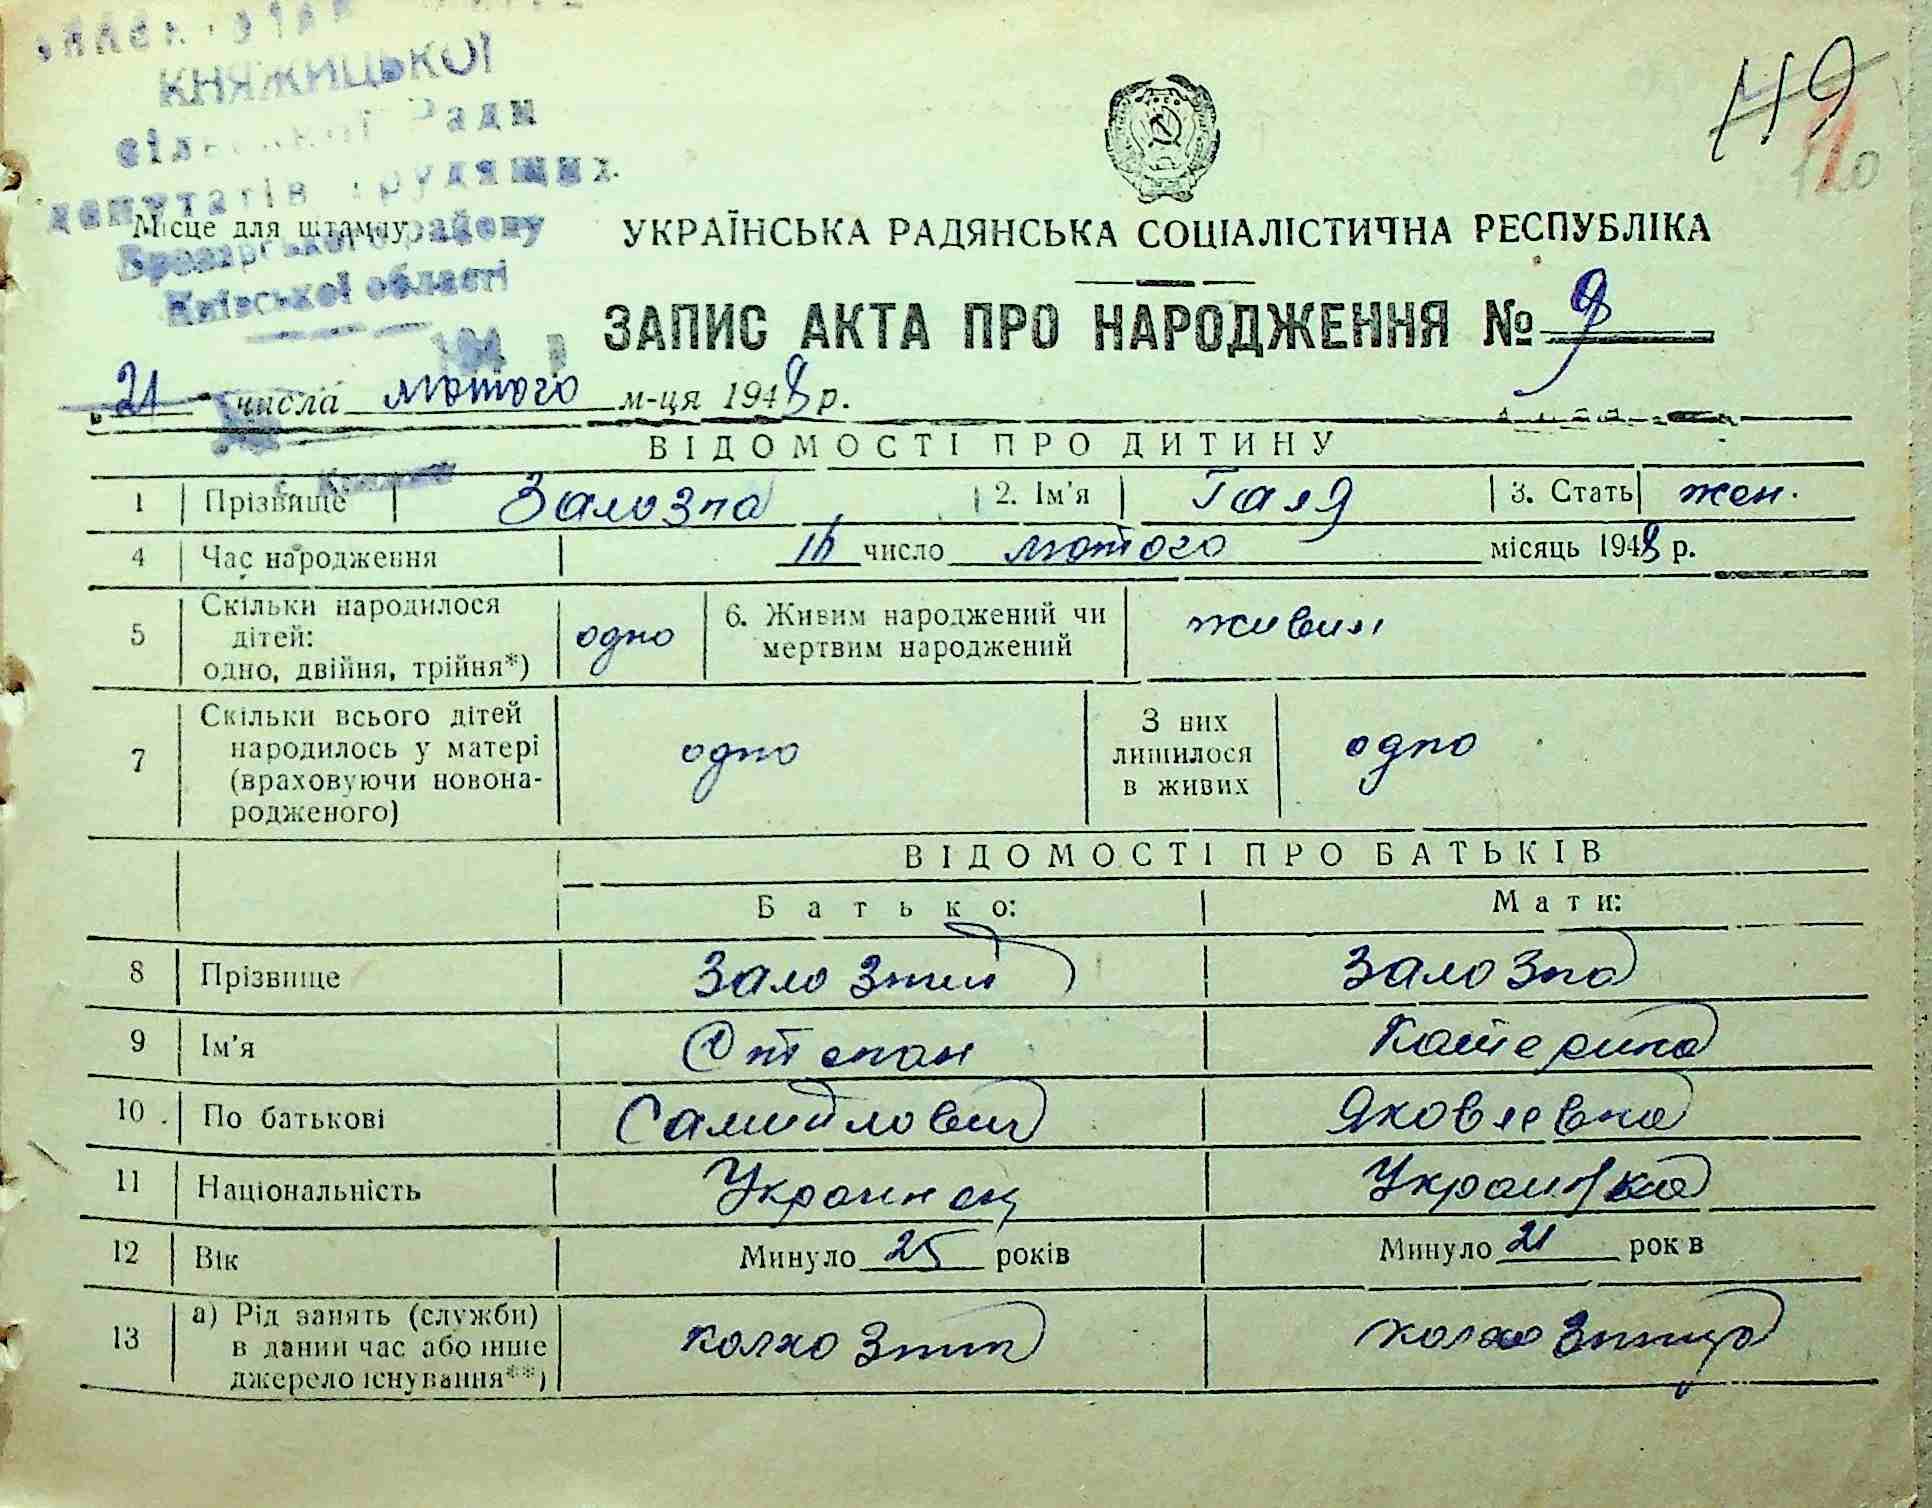 КНЯЖИЦЬКОЇ
сільської Ради
депутатів трудящих
Місце для штампу
Броварського району
Київської області
194 р
Н9
УКРАЇНСЬКА РАДЯНСЬКА СОЦІАЛІСТИЧНА РЕСПУБЛІКА
ЗАПИС АКТА ПРО НАРОДЖЕННЯ № 9
"21" числа лютого м-ця 1948 р.
ВІДОМОСТІ ПРО ДИТИНУ
1 Прізвище Залозна 2. Ім'я Галя 3. Стать жен.
4 Час народження 16 число лютого місяць 1948 р.
5 Скільки народилося дітей: одно, двійня, трійня*) одно 6. Живим народжений чи мертвим народжений живим
7 Скільки всього дітей народилось у матері (враховуючи новонародженого) одно З них лишилося в живих одно
ВІДОМОСТІ ПРО БАТЬКІВ
Батько: Мати:
8 Прізвище Залозний Залозна
9 Ім'я Степан Катерина
10. По батькові Самийлович Яковлевна
11 Національність Украинец Украинка
12 Вік Минуло 25 років Минуло 21 рок в
13 а) Рід занять (служби) в даний час або інше джерело існування**) колхозник колхозница